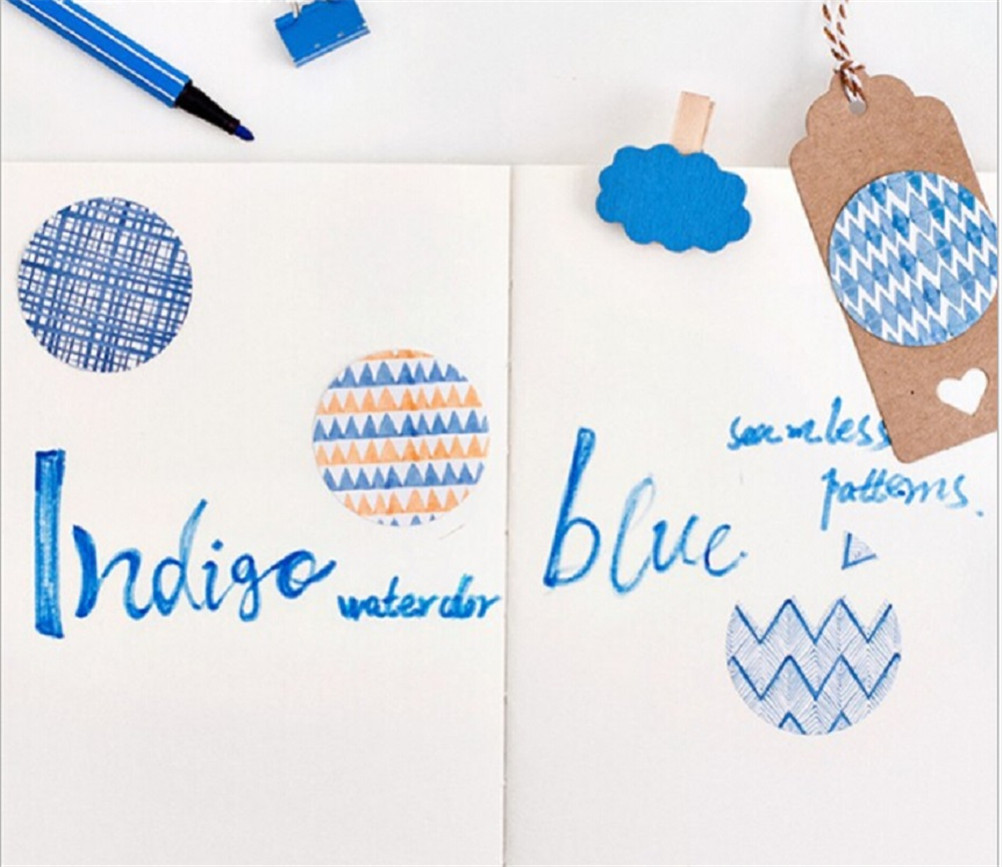 Indigo
watercolor
blue
seamless
patterns.